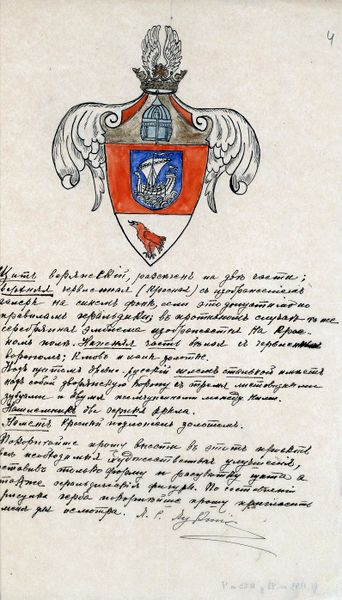 4
Щитъ варяжскiй, разсеченъ на двѣ части;
верхняя червленная (красная) съ изображенiемъ
галеры на синемъ фонѣ, если это допустимо по
правиламъ геральдики, въ противномъ случаѣ та же
серебряная эмблема изображается на крас-
номъ полѣ. Нижняя часть бѣлая съ червленнымъ
ворономъ; клювъ и лапы золотые.
Надъ щитомъ обыкн. русскiй шлемъ стальной имѣетъ
надъ собой дворянскую корону съ тремя листовидными
зубцами и двумя жемчужинами между ними.
Нашлемникъ два крыла орла.
Наметъ красный подложенъ золотомъ.
Покорнѣйше прошу внести въ этотъ проектъ
всѣ необходимыя художественныя улучшенiя,
оставивъ только форму и разбивку щита а
также геральдическiя фигуры. По составленiи
рисунка герба покорнѣйше прошу пригласить
меня для осмотра. А. С.